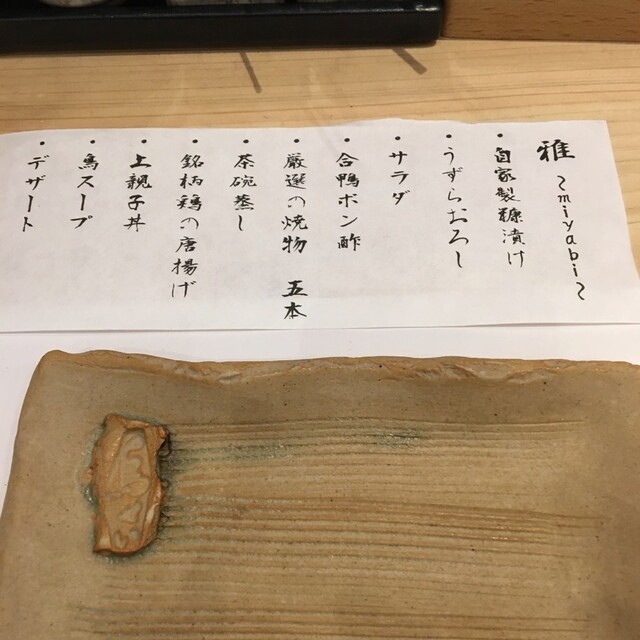 雅 ~miyabi~
・自家製糠漬け
・うずらおろし
・サラダ
・合鴨ポン酢
・厳選の焼物 五本
・茶碗蒸し
・銘柄鶏の唐揚げ
・上親子丼
・鳥スープ
・デザート